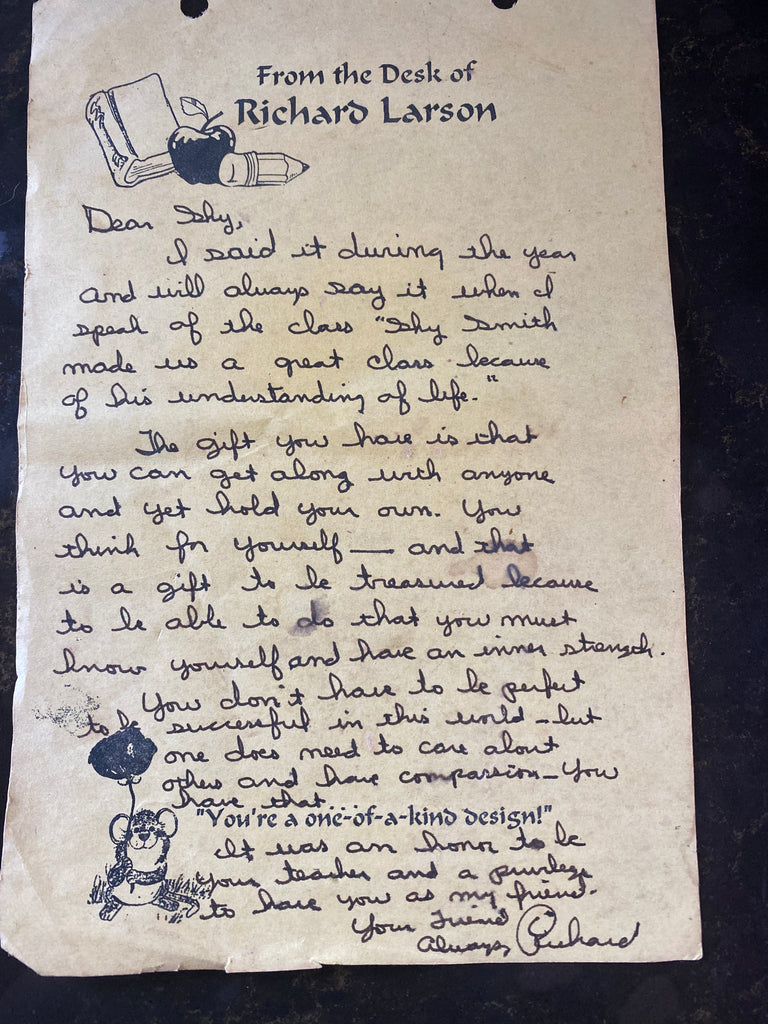 From the Desk of
Richard Larson
Dear Shy,
I said it during the year
and will always say it when I
speak of the class "Shy Smith
made us a great class because
of his understanding of life."
The gift you have is that
you can get along with anyone
and yet hold your own. You
think for yourself — and that
is a gift to be treasured because
to be able to do that you must
know yourself and have an inner strength.
You don't have to be perfect
to be successful in this world - but
one does need to care about
others and have compassion - You
have that.
"You're a one-of-a-kind design!"
It was an honor to be
your teacher and a privilege
to have you as my friend.
Your Friend
Always, Richard